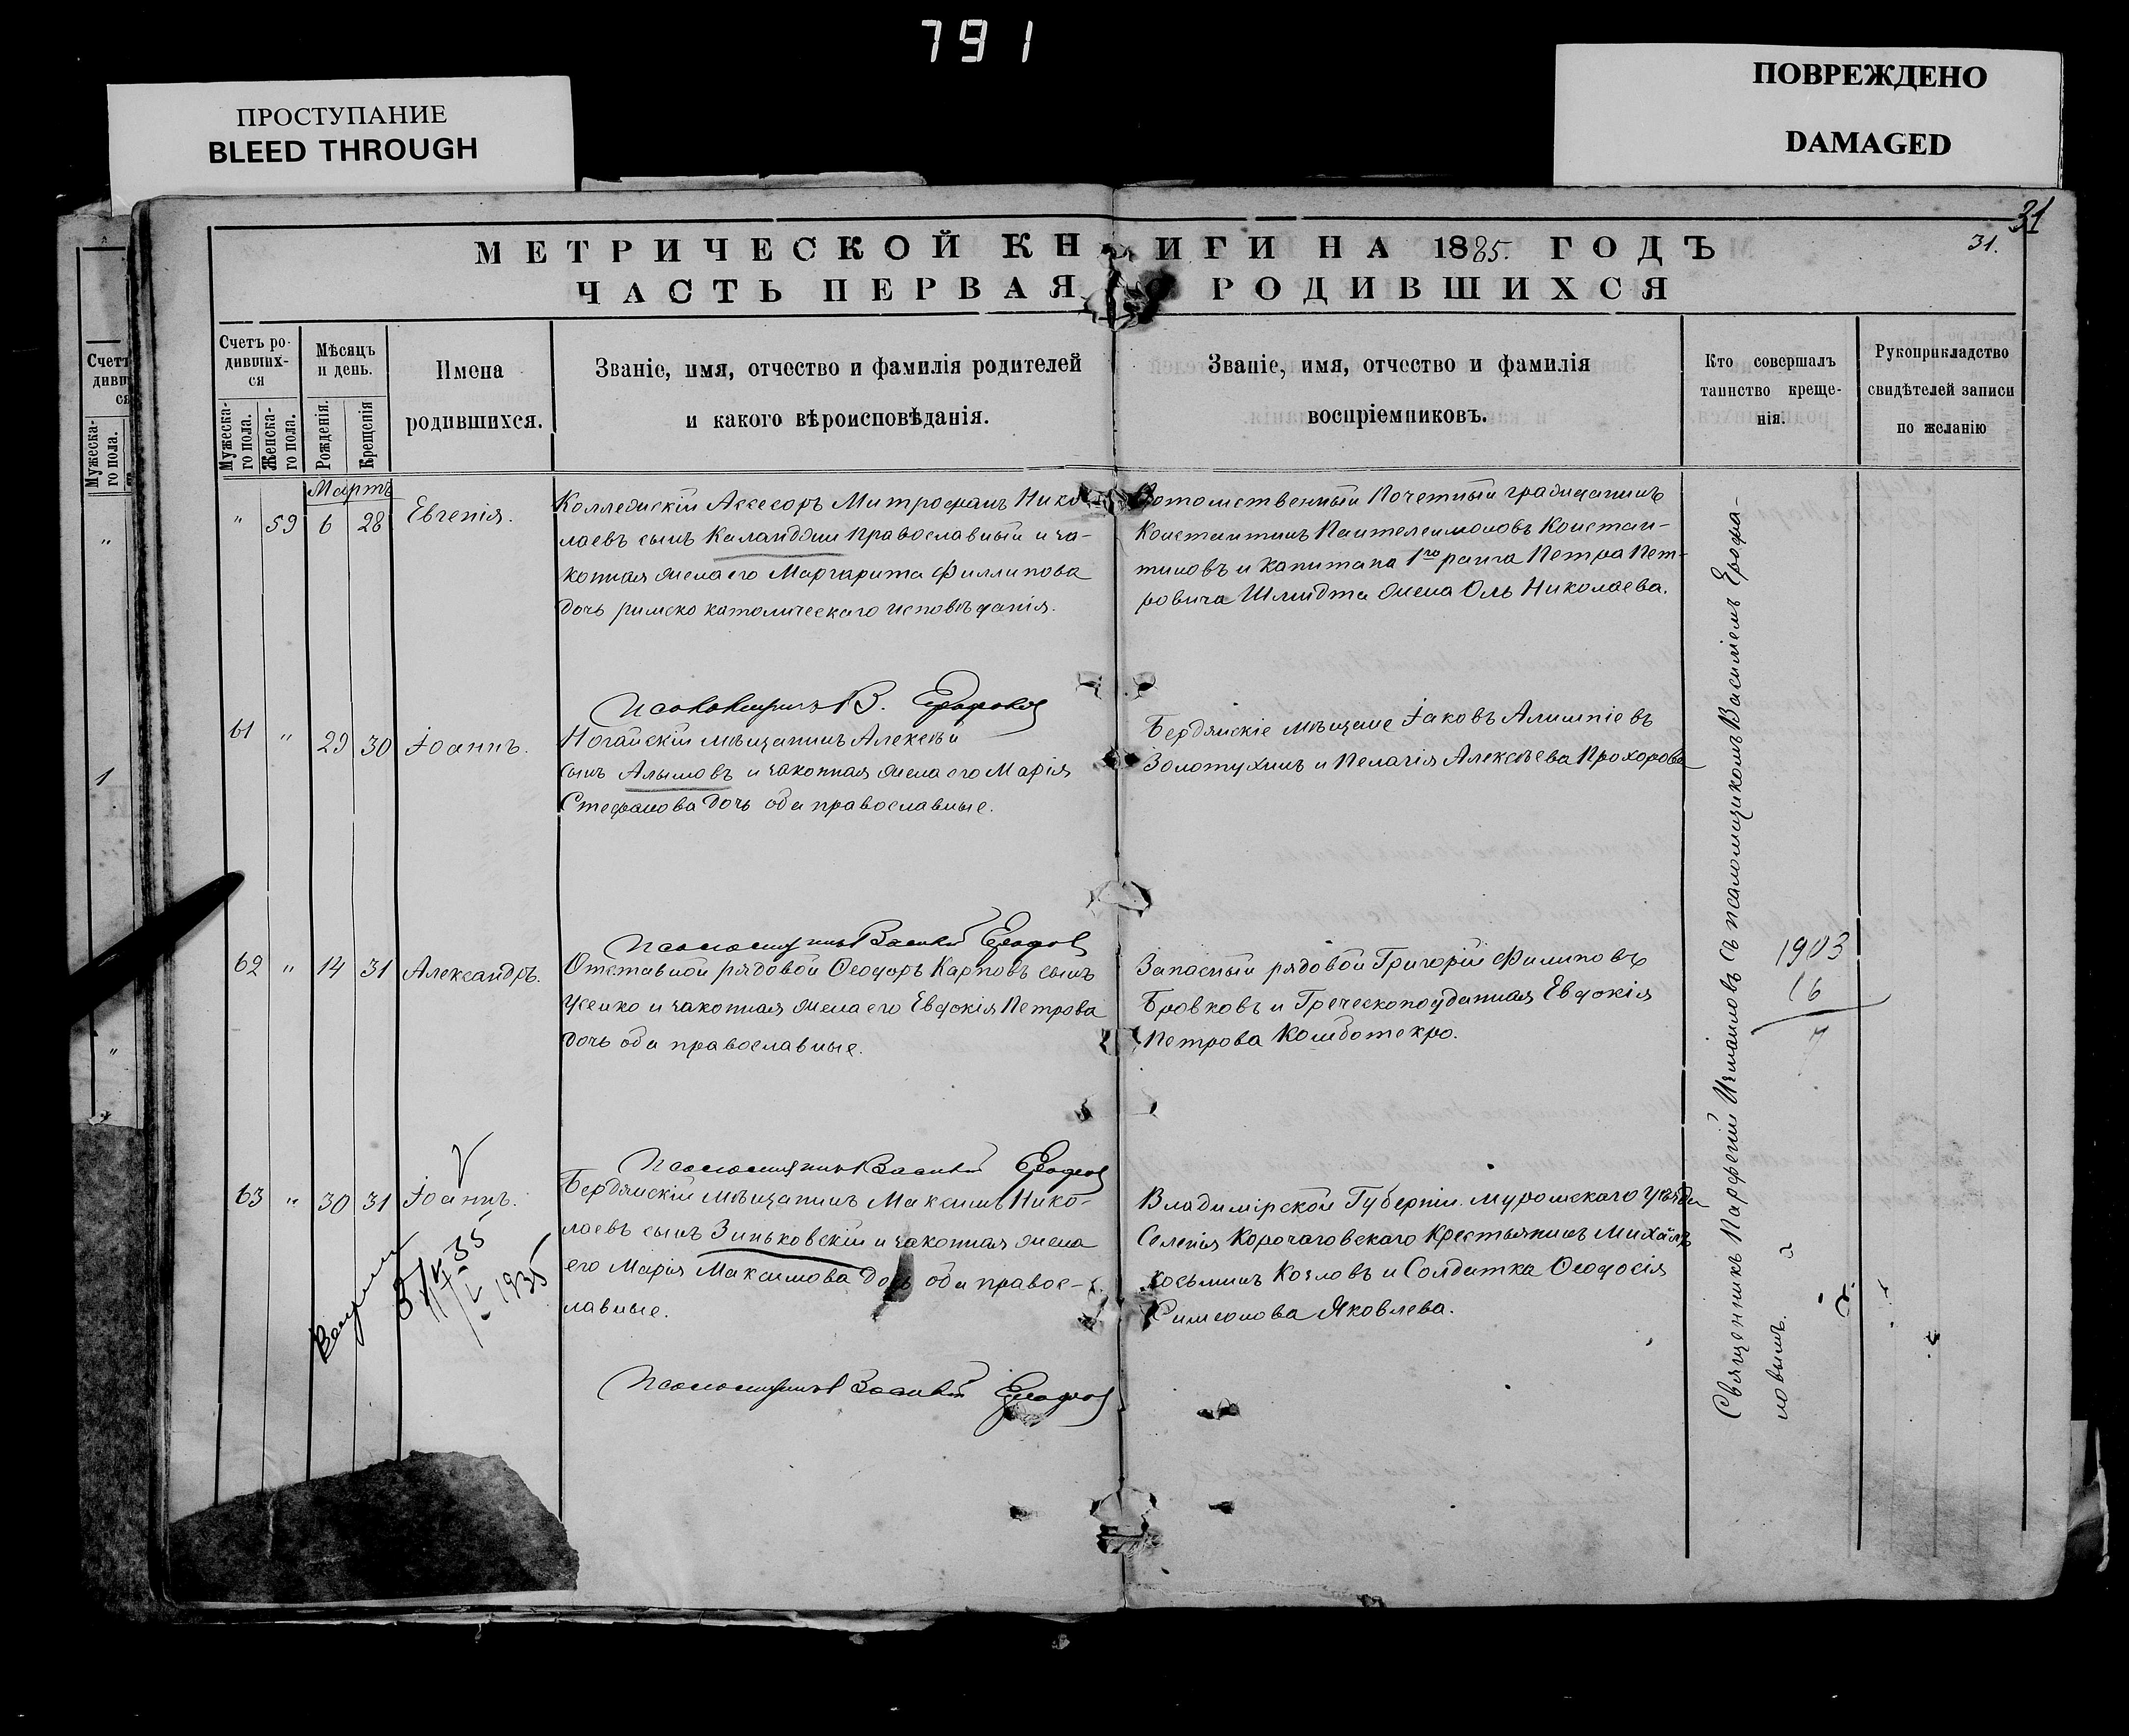 791
ПРОСТУПАНИЕ
BLEED THROUGH
ПОВРЕЖДЕНО
DAMAGED
31
31.
МЕТРИЧЕСКОЙ КНИГИ НА 1885. ГОДЪ
ЧАСТЬ ПЕРВАЯ РОДИВШИХСЯ
Счетъ ро-
дивших-
ся
Мужеска-
го пола.
Женска-
го пола.
Мѣсяцъ
и день.
Рожденія.
Крещенія
Имена
родившихся.
Званіе, имя, отчество и фамилія родителей
и какого вѣроисповѣданія.
Званіе, имя, отчество и фамилія
воспріемниковъ.
Кто совершалъ
таинство креще-
нія.
Рукоприкладство
свидѣтелей записи
по желанію
Мартъ
" 59 6 28 Евгенія.
Коллежскій Ассесоръ Митрофанъ Нико-
лаевъ сынъ Каланддни православный и за-
конная жена его Маргарита Филлипова
дочь римско католическаго исповѣданія.
Потомственный Почетный гражданинъ
Константинъ Пантелеимоновъ Констан-
тиновъ и Капитана 1го ранга Петра Пет-
ровича Шмидта жена Оль Николаева.
Псаломщикъ В. Ерофаловъ
61 " 29 30 Іоаннъ.
Ногайскій мѣщанинъ Алексѣй
сынъ Алымовъ и законная жена его Марія
Стефанова дочь оба православные.
Бердянскіе мѣщане Іаковъ Алимпіевъ
Золотухинъ и Пелагія Алексѣева Прохорова
Псаломщикъ Василій
62 " 14 31 Александръ.
Отставной рядовой Ѳеодоръ Карповъ сынъ
Усенко и законная жена его Евдокія Петрова
дочь оба православные.
Запасный рядовой Григорій Филиповъ
Бровковъ и Греческоподданная Евдокія
Петрова Комботекро.
1903
16
7
Псаломщикъ Василій
63 " 30 31 Іоаннъ.
Бердянскій мѣщанинъ Максимъ Нико-
лаевъ сынъ Зиньковскій и законная жена
его Марія Максимова дочь оба правос-
лавные.
Владимірской Губерніи Муромскаго уѣзда
Селенія Корочаровскаго Крестьянинъ Михаилъ
Косьминъ Козловъ и Солдатка Ѳеодосія
Симеонова Яковлева.
1935
Псаломщикъ Василій
Священникъ Парфеній Измаиловъ съ псаломщикомъ Василіемъ Ерофа-
ловымъ.
Счетъ
дивш
ся
Мужеска-
го пола.
"
1
"